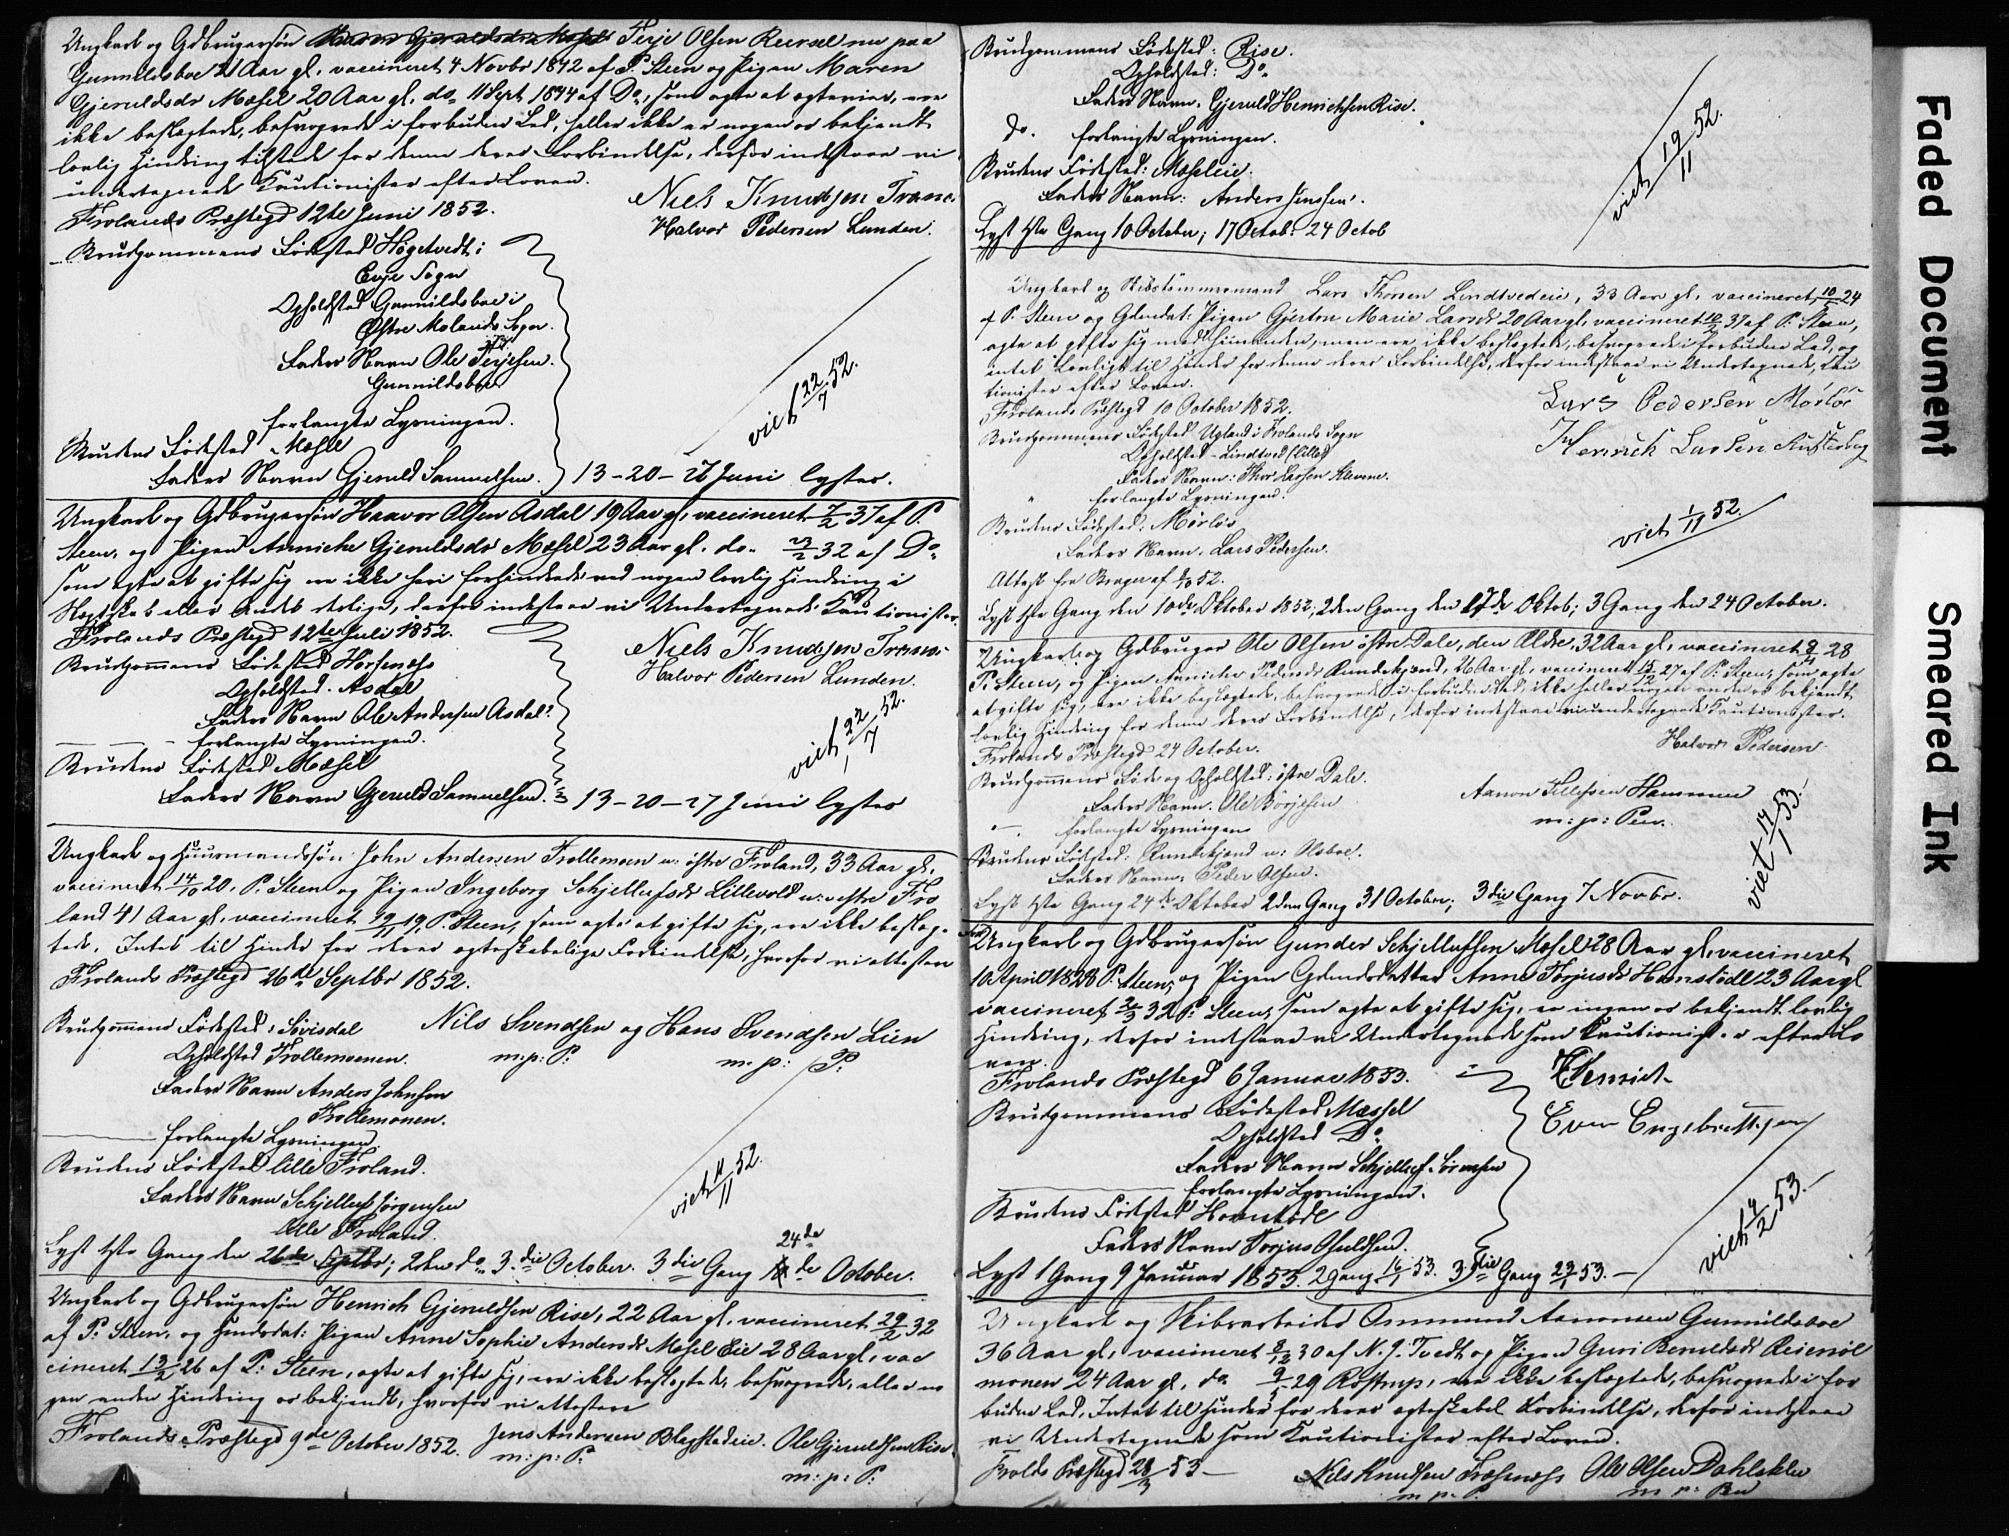 Ungkarl og Gdbrugersøn Terje Olsen Reersel nu paa
Gunnildsboe 21 Aar gl. vaccineret 4 Novbr 1842 af P. Steen og Pigen Maren
Gjeruldsdr Mæsel 20 Aar gl. do 11 Sept 1844 af Do, som agte at ægtevies, ere
ikke beslægtede, besvogrede i forbudne Led, heller ikke er nogen os bekjendt
lovlig Hindring tilstede for denne deres Forbindelse, derfor indestaae vi
undertegnede Cautionister efter Loven.
Frolands Præstegd 12te Juni 1852.
Niels Knudsen Trænæs
Halvor Pedersen Lunden.
Brudgommens Fødested Høgetvedt i
Evje Sogn
Opholdsted Gunnildsboe i
Østre Molands Sogn.
Faders Navn Ole Terjesen
Gunnildsboe
forlangte Lysningen.
Brudens Fødested Mæsel
Faders Navn Gjeruld Samuelsen.
13-20-27 Juni lyster.
viet 22/7 52.
Ungkarl og Gdbrugersøn Haavor Olsen Asdal 19 Aar gl, vaccineret 7/2 37 af P.
Steen, og Pigen Anniche Gjeruldsdr Mæsel 23 Aar gl. do. 23/2 32 af Do
som agte at gifte sig ere ikke heri forhindrede ved nogen lovlig Hindring i
Slægtskab eller andet deslige, derfor indestaae vi Undertegnede Cautionister.
Frolands Præstegd 12te Juli 1852.
Niels Knudsen Trænæs
Halvor Pedersen Lunden.
Brudgommens Fødested Horsenæs
Opholdsted. Asdal
Faders Navn Ole Andersen Asdal.
forlangte Lysningen.
Brudens Fødested Mæsel
Faders Navn Gjeruld Samuelsen.
13-20-27 Juni lyster
viet 22/7 52.
Ungkarl og Huusmandssøn John Andersen Trollemoen u: østre Froland, 33 Aar gl.
vaccineret 14/10 20. P. Steen og Pigen Ingeborg Schjellufsdr Lillevold u: vestre Fro
land 41 Aar gl. vaccineret 19, P. Steen, som agte at gifte sig, ere ikke beslæg-
tede. Intet til Hinder for deres ægteskabelige Forbindelse, hvorfor vi attestere
Frolands Præstegd 26de Septbr 1852.
Nils Svendsen og Hans Svendsen Lien
m: p: P. m: p: P.
Brudgommens Fødested: Sivisdal
Opholdsted Trollemoenen.
Faders Navn Anders Johnsen
Trollemonen.
forlangte Lysningen.
Brudens Fødested lille Froland.
Faders Navn Schjelluf Jørgensen
lille Froland.
viet 52.
Lyst 1ste Gang den 26de Septbr; 2den do. 3die October. 3die Gang 24de October.
Ungkarl og Gdbrugersøn Henrich Gjeruldsen Rise, 22 Aar gl. vaccineret 29/2 32
af P. Steen, og Huusdat: Pigen Anne Sophie Andersdr Mæsel Eie 28 Aar gl, vac
cineret 13/2 26 af P. Steen, agte at gifte sig, ere ikke beslægtede, besvogrede, eller no
gen anden Hindring os bekjendt, hvorfor vi attestere
Frolands Præstegd 9de October 1852.
Jens Andersen Blagstadeie. Ole Gjeruldsen Rise.
m: p: P. m: p: P.
Brudgommens Fødested: Rise.
Opholdsted: Do.
Faders Navn. Gjeruld Henrichsen Rise.
do. forlangte Lysningen.
Brudens Fødested: Mæseleie.
Faders Navn: Anders Jenssen.
Lyst 1ste Gang 10 October; 17 Octob. 24 Octob
viet 19/11 52.
Ungkarl og Skibstømmermand Lars Thorsen Lindtvedeie, 33 Aar gl. vaccineret 24
af P. Steen og Gdmdat: Pigen Gjertru Marie Larsdr 20 Aar gl. vaccineret 37 af P. Steen,
agte at gifte sig med hinanden, men ere ikke beslægtede, besvogrede i forbudne Led, og
intet lovligt til Hinder for denne deres Forbindelse, derfor indestaae vi Undertegnede, Cau
tionister efter Loven.
Frolands Præstegd 10 October 1852.
Lars Pedersen Mørløs
Henrick Larsen
Brudgommens Fødested Ugland i Frolands Sogn
Opholdsted - Lindtved (lille)
Faders Navn: Thor Larsen
forlangte Lysningen.
Brudens Fødested: Mørløs
Faders Navn. Lars Pedersen.
Attest fra Bruger af 52.
viet 1/11 52.
Lyst 1ste Gang den 10de Oktober 1852; 2den Gang den 17de Oktob; 3 Gang den 24 October.
Ungkarl og Gdbruger Ole Olsen østre Dale, den Ældre, 32 Aar gl, vaccineret 28
P. Steen, og Pigen Anniche Pedersdr, 26 Aar gl, vaccineret 27 af P. Steen, som agte
at gifte sig, ere ikke beslægtede, besvogrede i forbudne Led, ikke heller nogen anden os bekjendt
lovlig Hindring for denne deres Forbindelse, derfor indestaae vi undertegnede Cautionister.
Frolands Præstegd 24 October.
Halvor Pedersen
Aanon Tellefsen Hammer
m: p: Pen.
Brudgommens Føde og Opholdsted: østre Dale.
Faders Navn. Ole Børjesen
forlangte Lysningen
Brudens Fødested:
Faders Navn: Peder Olsen.
viet 14/1 53.
Lyst 1ste Gang 24de Oktober 2den Gang 31 October; 3die Gang 7 Novbr.
Ungkarl og Gdbrugersøn Gunder Schjellufsen Mæsel 28 Aar gl, vaccineret
10 April 1828 P. Steen, og Pigen Gdmdsdatter Anne Torjusdr Hornstødl 23 Aar gl
vaccineret 32 P. Steen, som agte at gifte sig, er ingen os bekjendt lovlig
Hindring, derfor indestaae vi Undertegnede som Cautionister efter Lo
ven.
Frolands Præstegd 6 Januar 1853.
Even Engebrettsen
Brudgommens Fødested Mæssel
Opholdsted Do
Faders Navn Schjelluf Sørensen
forlangte Lysningen.
Brudens Fødested Hornstødl
Faders Navn Torjus Osuldsen.
viet 4/2 53.
Lyst 1 Gang 9 Januar 1853. 2 Gang 16/1 53. 3die Gang 23/1 53.
Ungkarl og Skibsarbeider Ommund Aanonsen Gunnildsboe
36 Aar gl, vaccineret 8/12 30 af N. J. Tvedt og Pigen Guri Berulsdr Reiersøl
monen 24 Aar gl, do 9/5 29 Rostrup, ere ikke beslægtede, besvogrede i for
budne Led. Intet til Hinder for deres ægteskabel. Forbindelse, derfor indestaae
vi Undertegnede som Cautionister efter Loven.
Frolds Præstegd 28/2 53
Nils Knudsen Trøsenæs Ole Olsen Dahlelslen
m. p: P. m: p: Pen
Faded Document
Smeared Ink